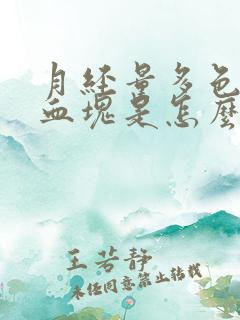 月经量多色
血块是怎么
王若静
未经同意禁止转载